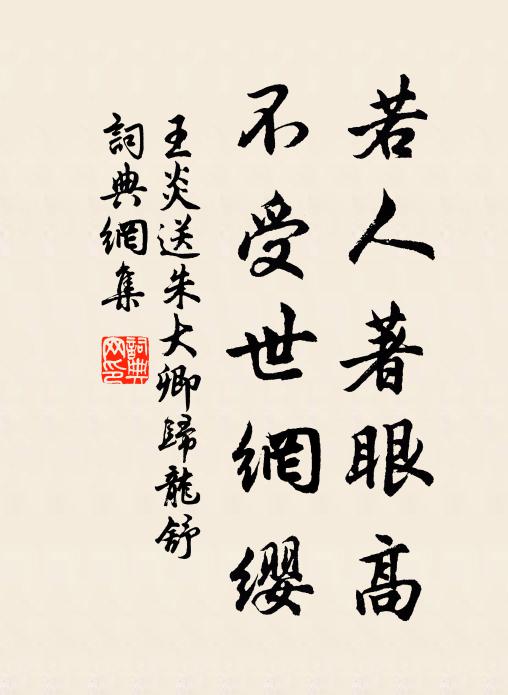 若人著眼高
不受世網纓
王炎送朱大卿歸龍舒
詞典網集
詞典網印